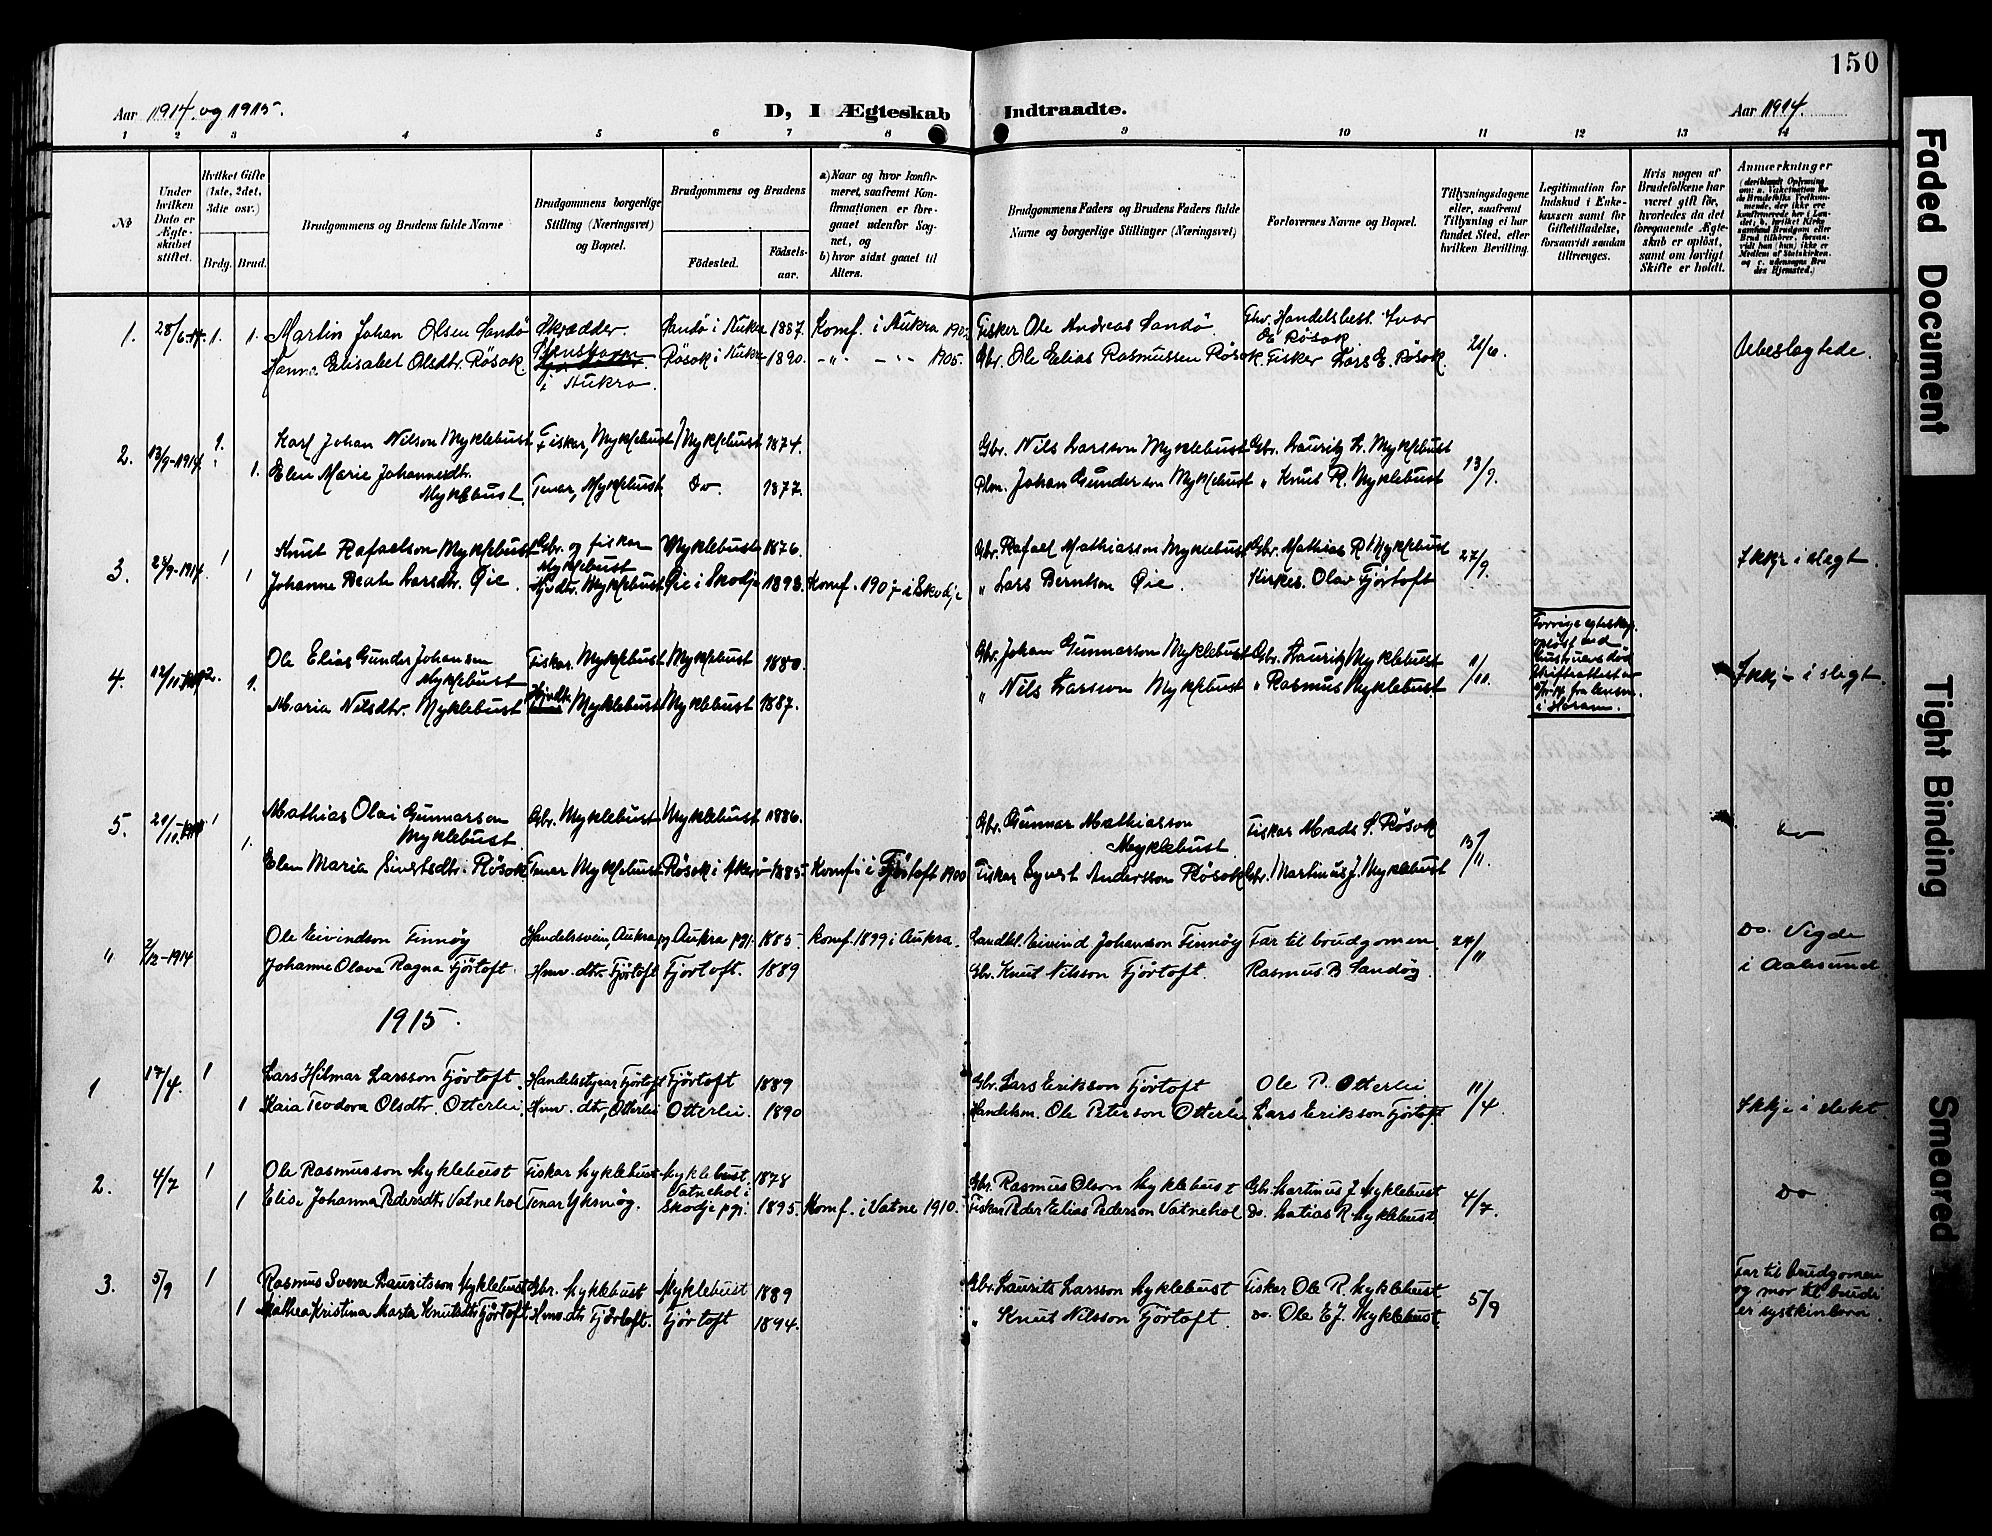 150
Aar 1914 og 1915.
D, I Ægteskab Indtraadte.
Aar 1914.
1 2 3 4 5 6 7 8 9 10 11 12 13 14
No
Under hvilken Dato er Ægteskabet stiftet.
Hvilket Gifte (1ste, 2det, 3die osv.)
Brdg. Brud.
Brudgommens og Brudens fulde Navne
Brudgommens borgerlige Stilling (Næringsvei) og Bopæl.
Brudgommens og Brudens
Födested.
Födselsaar.
a) Naar og hvor konfirmeret, saafremt Konfirmationen er foregaaet udenfor Sognet, og
b) hvor sidst gaaet til Alters.
Brudgommens Faders og Brudens Faders fulde Navne og borgerlige Stillinger (Næringsvei)
Forlovernes Navne og Bopæl.
Tillysningsdagene eller, saafremt Tillysning ei har fundet Sted, efter hvilken Bevilling.
Legitimation for Indskud i Enkekassen samt for Giftetilladelse, forsaavidt saadan tiltrænges.
Hvis nogen af Brudefolkene har været gift för, hvorledes da det foregaaende Ægteskab er oplöst, samt om lovligt Skifte er holdt.
Anmærkninger
1. 28/6-14. 1. Martin Johan Olsen Sandö Skrædder Sandö i Aukra 1887. Konf. i Aukra Fisker Ole Andreas Sandö. Gbr. Handelsbest. Ivar E. Rösok
1. Hanna Elisabet Olsdtr. Rösok. i Aukra. Rösok i Aukra 1890. -"- -"- 1905. Gbr. Ole Elias Rasmussen Rösok. Fisker Lars E. Rösok. 21/6. Ubeslegtede.
2. 13/9-1914. 1. Karl Johan Nilson Myklebust Fiskar, Myklebust Myklebust 1874. Gbr. Nils Larsson Myklebust Gbr. Lauritz L. Myklebust
1. Elen Marie Johannesdtr. Myklebust. Tenar, Myklebust Do. 1877. Johan Gunderson Myklebust " Knut R. Myklebust 13/9.
3. 1 Knut Rafaelson Myklebust Gbr. og fiskar Myklebust Myklebust 1876. Gbr. Rafael Mathiasson Myklebust Gbr. Mathias R Myklebust 27/9.
1 Johanne Beate Larsdtr. Øie. Myklebust Øie i Skodje 1893. Konf. 1907 i Skodje " Lars Berntson Øie. Kirkes. Olav Fjörtoft Ikkje i slegt.
4. 2. Ole Elias Gunder Johansen Myklebust Fiskar. Myklebust Myklebust 1880. Gbr. Johan Gunnarson Myklebust Gbr. Lauritz Myklebust 11/10.
1. Maria Nilsdtr. Myklebust Myklebust Myklebust 1887. " Nils Larsson Myklebust " Rasmus Myklebust Ikkje i slegt.
i Haram.
5. 1 Mathias Olai Gunnarson Myklebust. Gbr. Myklebust Myklebust 1886. Gbr. Gunnar Mathiasson Myklebust Fiskar Mads S. Rösok
1. Elen Maria Sivertsdtr. Rösok. Tenar Myklebust Rösok i Akerö 1885 Konf. i Fjörtoft 1900 Fiskar Syvert Andersson Rösok Gbr. Martinus J. Myklebust 15/11. Do
" 2/12-1914 Ole Eivindson Finnöy Handelssvein, Aukra pg. Aukra pgj. 1885 Konf. 1899 i Aukra. Landhl. Eivind Johanson Finnöy Far til brudgomen. 24/11 Do. Vigde
Johanne Olava Ragna Fjörtoft. Hmv. dtr. Fjörtoft Fjörtoft. 1889 Gbr. Knut Nilsson Fjörtoft. Rasmus B Sandöy i Aalesund
1915.
1 17/4. 1 Lars Hilmar Larsson Fjörtoft. Handelsstyrar Fjörtoft Fjörtoft 1889 Gbr. Lars Erikson Fjörtoft Ole P. Otterlei
1 Kaia Teodora Olsdtr. Otterlei Hmv. dtr, Otterlei Otterlei. 1890 Handelsm. Ole Peterson Otterlei Lars Erikson Fjörtoft. 11/4. Ikkje i slekt
2. 4/7 1 Ole Rasmusson Myklebust Fiskar Myklebust Myklebust. 1878 Gbr. Rasmus Olson Myklebust Gbr. Martinus J Myklebust
1 Elise Johanna Pedersdtr Vatnehol Tenar Vatnehol i Skodje pgj. 1895. Konf. i Vatne 1910. Fiskar Peder Elias Pederson Vatnehol Do. Matias R Myklebust 4/7. Do
3. 5/9 1 Rasmus Sverre Lauritsson Myklebust Gbr. Myklebust Myklebust 1889 Gbr. Laurits Larsson Myklebust Fiskar Ole R. Myklebust Far til brudgomen
1 Mathea Kristina Marta Knutsdtr Fjörtoft. Hmv. dtr Fjörtoft. Fjörtoft 1894. " Knut Nilsson Fjörtoft. Do. Ole E J. Myklebust. 5/9 og mor til brudi er syskinborn
Faded Document
Tight Binding
Smeared